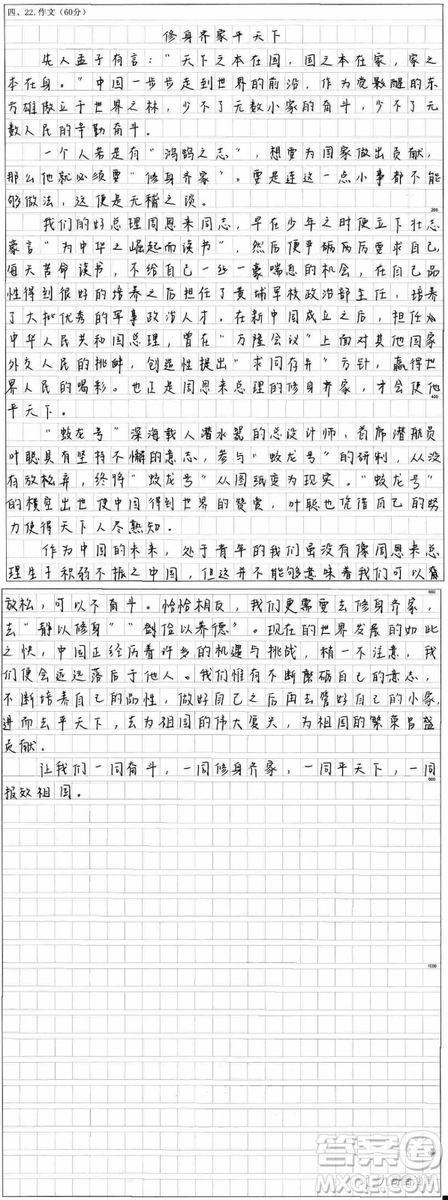 四、22.作文(60分)
修身齐家平天下
先人孟子有言："天下之本在国，国之本在家，家之
本在身。"中国一步步走到世界的前沿，作为觉醒的东
方雄傲立于世界之林，少不了无数小家的奋斗，少不了无
数人民的辛勤奋斗。
一个人若是有"鸿鹄之志"，想要为国家做出贡献，
那么他就必须要"修身齐家"。要是连这一点小事都不能
够做法，这便是无稽之谈。
200
我们的好总理周恩来同志，早在少年之时便立下壮志
豪言"为中华之崛起而读书"，然后便严格历历要求自己，
每天苦命读书，不给自己一丝一毫喘息的机会，在自己品
性得到很好的培养之后担任了黄埔军校政治部主任，培养
了大批优秀的军事政治人才。在新中国成立之后，担任
中华人民共和国总理，曾在"万隆会议"上面对其他国家
外交人民的挑衅，创造性提出"求同存异"方针，赢得世
界人民的喝彩。也正是周恩来总理的修身齐家，才会使他
400
平天下。
"蛟龙号"深海载人潜水器的总设计师、首席潜航员
叶聪具有坚持不懈的意志，参与"蛟龙号"的研制，从没
有放松弃，终将"蛟龙号"从图纸变为现实。"蛟龙号"
的横空出世使中国得到世界的赞赏，叶聪也凭借自己的努
力使得天下人尽熟知。
作为中国的未来，处于青年的我们虽没有像周恩来总
理生于积弱不振之中国，但这并不能够意味着我们可以
600
放松，可以不奋斗。恰恰相反，我们更需要去修身齐家，
去"静以修身""俭以养德"。现在的世界发展的如此
之快，中国正经历着许多的机遇与挑战，稍一不注意，我
们便会远远落后于他人。我们惟有不断磨砺自己的意志，
不断培养自己的品性，做好自己之后再去管好自己的小家，
进而去平天下，去为祖国的伟大复兴，为祖国的繁荣昌盛
贡献。
让我们一同奋斗，一同修身齐家，一同平天下，一同
800
报效祖国。
1000
答案圈
MXQE.COM